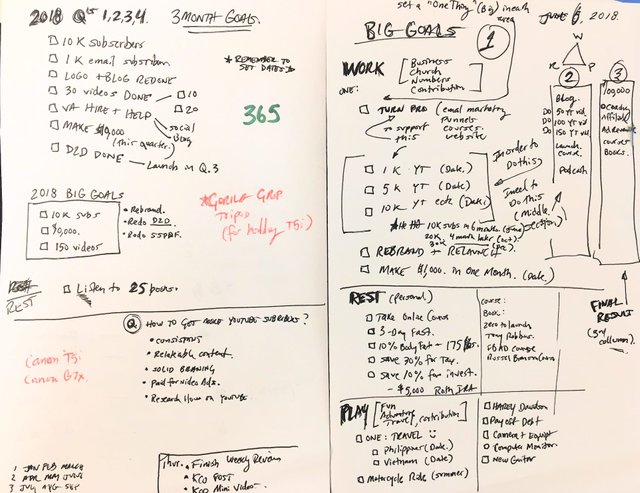 2018 Q's 1,2,3,4. 3 MONTH GOALS.
10K subscribers
1K email subscribers
LOGO + BLOG REDONE
30 videos DONE
10
20
VA HIRE + HELP
social
Blog
MAKE $10,000
(this quarter.)
D2D DONE — Launch in Q.3
*REMEMBER TO
SET DATES*
365
2018 BIG GOALS
10K subs
150 videos
Rebrand.
Redo D2D
*GORILLA GRIP
Tripod
(for holding T5i)
REST
Listen to 25 books.
Q HOW TO GET MORE YOUTUBE SUBSCRIBERS?
consistency
Relatable content.
SOLID BRANDING
Paid for Video Ads.
Research How on YouTube
Canon T5i
Canon G7x
1 JAN FEB MARCH
2 APR MAY JUNE
3 JUL AUG SEP
Thur. Finish Weekly Review
KCO POST
KCO Mini Video.
set a "One Thing" (Big) in each
area
JUNE 6, 2018.
BIG GOALS
1
WORK
Business
Church
Numbers
Contribution
ONE:
TURN PRO (email marketing
Funnels
courses.
website
to support
this
In order to
do this
1K YT (Date.)
5K YT (Date)
10K YT (Date)
I need to
Do This
(Middle
section)
10K subs in 6 months
REBRAND + RELAUNCH
MAKE $1,000. in one Month. (Date)
REST (personal)
Take Online Course
3-Day Fast.
10% Body Fat - 175 lbs.
save 30% for Tax.
save 10% for invest.
- $5,000 Roth IRA
course:
Book:
zero to launch
Tony Robbins
FB AD course
PLAY
Fun
Adventure
Travel, contribution
ONE: TRAVEL
Philippines (Date.)
Vietnam (Date)
Motorcycle Ride (summer)
HARLEY Davidson
Pay off Debt
Camera + Equipt
Computer Monitor
New Guitar
W
R
P
2
Blog.
DO 50 YT vid
DO 100 YT vid
DO 150 YT vid
Launch
course.
Podcast
3
100,000
Affiliate
courses
Books.
FINAL
RESULT
(3rd
column).